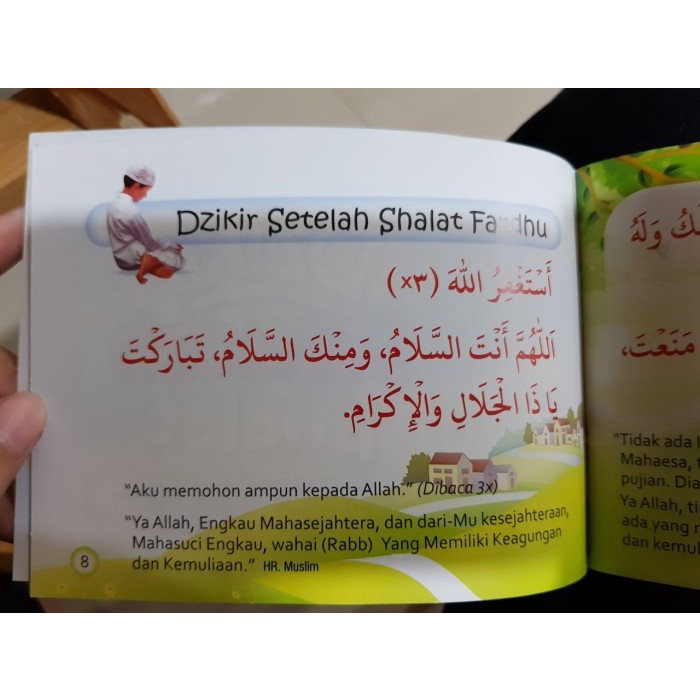 Dzikir Setelah Shalat Fardhu
أَسْتَغْفِرُ اللهَ (٣×)
اَللّٰهُمَّ أَنْتَ السَّلَامُ، وَمِنْكَ السَّلَامُ، تَبَارَكْتَ
يَا ذَا الْجَلَالِ وَالْإِكْرَامِ.
"Aku memohon ampun kepada Allah." (Dibaca 3x)
"Ya Allah, Engkau Mahasejahtera, dan dari-Mu kesejahteraan,
Mahasuci Engkau, wahai (Rabb) Yang Memiliki Keagungan
dan Kemuliaan." HR. Muslim
8
وَلَهُ
مَنَعْتَ،
"Tidak ada
Mahaesa,
pujian. Dia
Ya Allah,
ada yang
dan